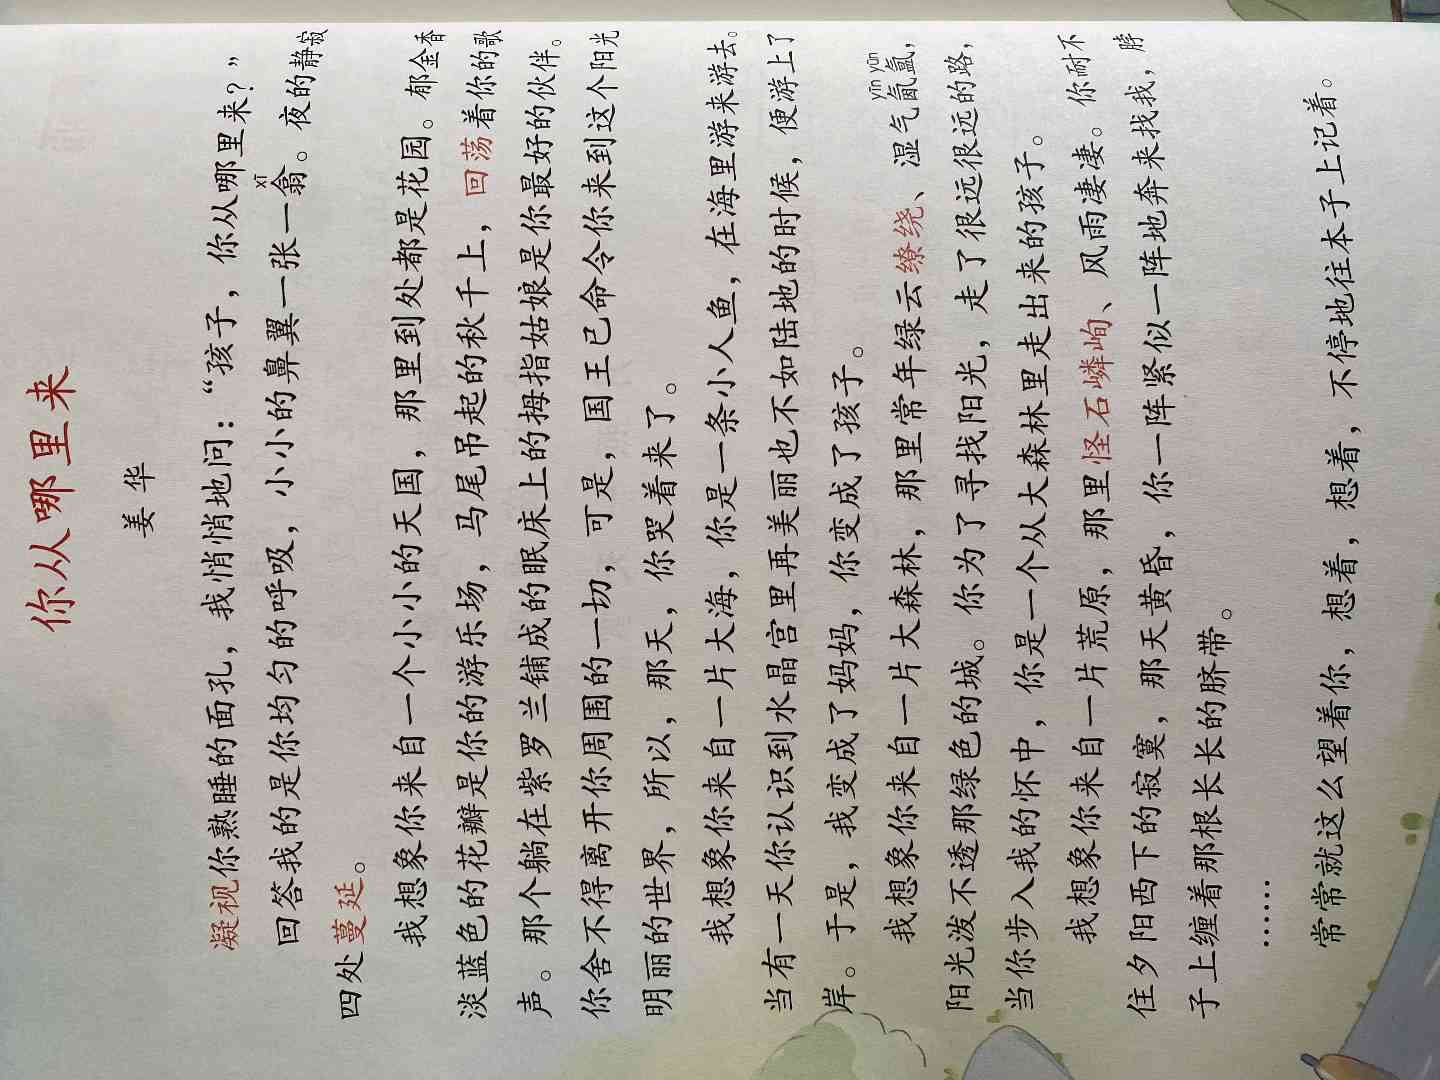 你从哪里来
姜华
凝视你熟睡的面孔，我悄悄地问：“孩子，你从哪里来？”
回答我的是你均匀的呼吸，小小的鼻翼一张一翕。夜的静寂
xī
四处蔓延。
我想象你来自一个小小的天国，那里到处都是花园。郁金香
淡蓝色的花瓣是你的游乐场，马尾吊起的秋千上，回荡着你的歌
声。那个躺在紫罗兰铺成的眠床上的拇指姑娘是你最好的伙伴。
你舍不得离开你周围的一切，可是，国王已命令你来到这个阳光
明丽的世界，所以，那天，你哭着来了。
我想象你来自一片大海，你是一条小人鱼，在海里游来游去。
当有一天你认识到水晶宫里再美丽也不如陆地的时候，便游上了
岸。于是，我变成了妈妈，你变成了孩子。
yīn yūn
我想象你来自一片大森林，那里常年绿云缭绕、湿气氤氲，
阳光泼不透那绿色的城。你为了寻找阳光，走了很远很远的路，
当你步入我的怀中，你是一个从大森林里走出来的孩子。
我想象你来自一片荒原，那里怪石嶙峋、风雨凄凄。你耐不
住夕阳西下的寂寞，那天黄昏，你一阵紧似一阵地奔来找我，脖
子上缠着那根长长的脐带。
……
常常就这么望着你，想着，想着，不停地往本子上记着。